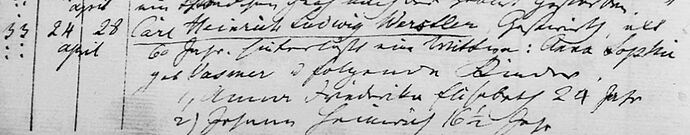 april ein
33 24 28 Carl Heinrich Ludwig Werfller, Gastwirth, alt
:: april 60 Jahr. hinterläßt eine Wittwe: Anna Sophie
:: geb Vasmer u folgende Kinder,
1) Anna Friederike Elisabeth 24 Jahr
2) Johann Heinrich 16½ Jahr